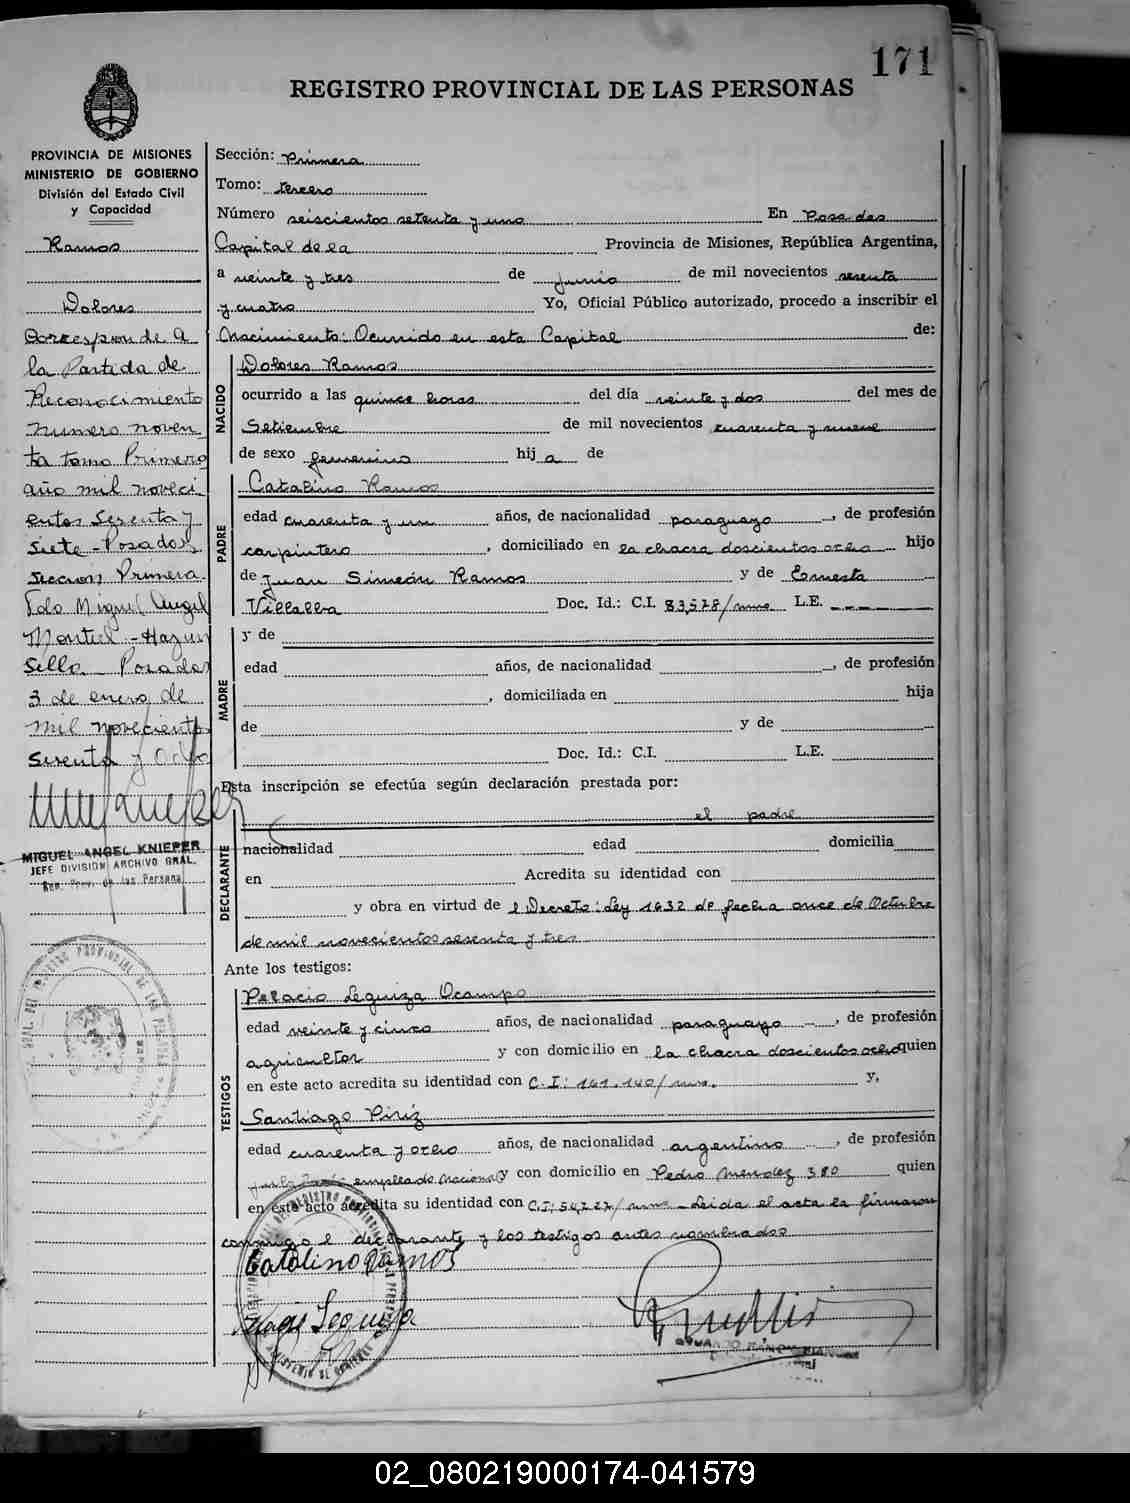 171
REGISTRO PROVINCIAL DE LAS PERSONAS
PROVINCIA DE MISIONES
MINISTERIO DE GOBIERNO
División del Estado Civil
y Capacidad
Ramos
Dolores
Corresponde A
la Partida de
Reconocimiento
Numero noven
ta tomo Primero
año mil noveci
entos Sesenta y
Siete - Posadas
Seccion Primera
Fdo Miguel Angel
Montiel - Hay un
Sello Posadas
3 de enero de
mil novecientos
Sesenta y Ocho
MIGUEL ANGEL KNIEPER
JEFE DIVISION ARCHIVO GRAL.
Reg. Prov. de las Personas
Sección: Primera
Tomo: tercero
Número seiscientos setenta y uno En Posadas
Capital de la Provincia de Misiones, República Argentina,
a veinte y tres de Junio de mil novecientos sesenta
y cuatro Yo, Oficial Público autorizado, procedo a inscribir el
Nacimiento: Ocurrido en esta Capital de:
NACIDO
Dolores Ramos
ocurrido a las quince horas del día veinte y dos del mes de
Setiembre de mil novecientos cuarenta y nueve
de sexo femenino hij a de
PADRE
Catalino Ramos
edad cuarenta y un años, de nacionalidad paraguayo, de profesión
carpintero, domiciliado en la chacra doscientos ocho hijo
de Juan Simeón Ramos y de Ernesta
Villalba Doc. Id.: C.I. 83,578/mnes L.E. - - - -
MADRE
y de
edad años, de nacionalidad , de profesión
, domiciliada en hija
de y de
Doc. Id.: C.I. L.E.
Esta inscripción se efectúa según declaración prestada por:
el padre
DECLARANTE
nacionalidad edad domicilia
en Acredita su identidad con
y obra en virtud de l Decreto: Ley 1632 de fecha once de Octubre
de mil novecientos sesenta y tres
Ante los testigos:
TESTIGOS
Pelacio Leguiza Ocampo
edad veinte y cinco años, de nacionalidad paraguayo, de profesión
agricultor y con domicilio en la chacra doscientos ocho quien
en este acto acredita su identidad con C.I: 141.140/mns. y,
Santiago Piriz
edad cuarenta y ocho años, de nacionalidad argentino, de profesión
empleado nacional y con domicilio en Pedro Mendez 380 quien
en este acto acredita su identidad con C.I: 54,727/mns - Leida el acta la firmaron
conmigo el declarante y los testigos antes nombrados
Catalino Ramos
Leguiza
02_080219000174-041579